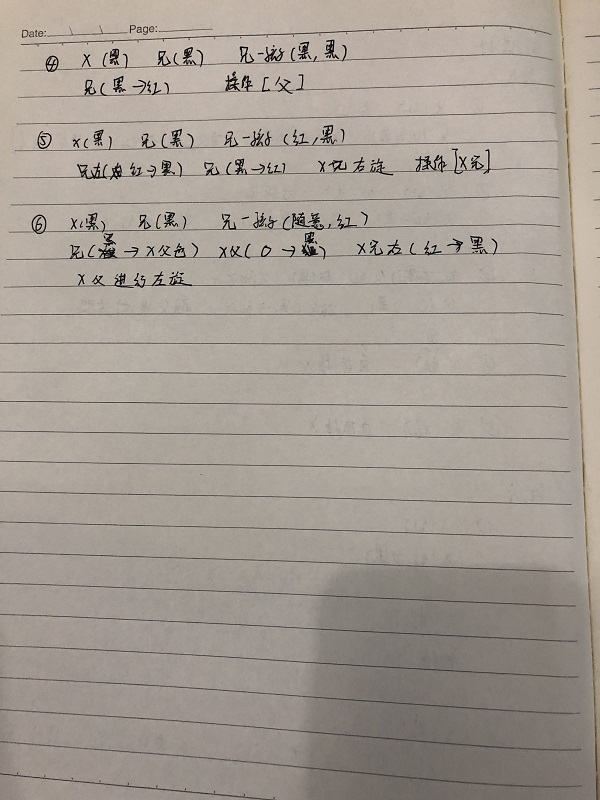 Date: \ \ Page:
④ X(黑) 兄(黑) 兄一孩子(黑,黑)
兄(黑→红) 操作[父]
⑤ x(黑) 兄(黑) 兄一孩子(红,黑)
兄左(红→黑) 兄(黑→红) X兄右旋 操作[X兄]
⑥ x(黑) 兄(黑) 兄一孩子(随意,红)
兄(黑→X父色) X父(O→黑) X兄右(红→黑)
X父进行左旋